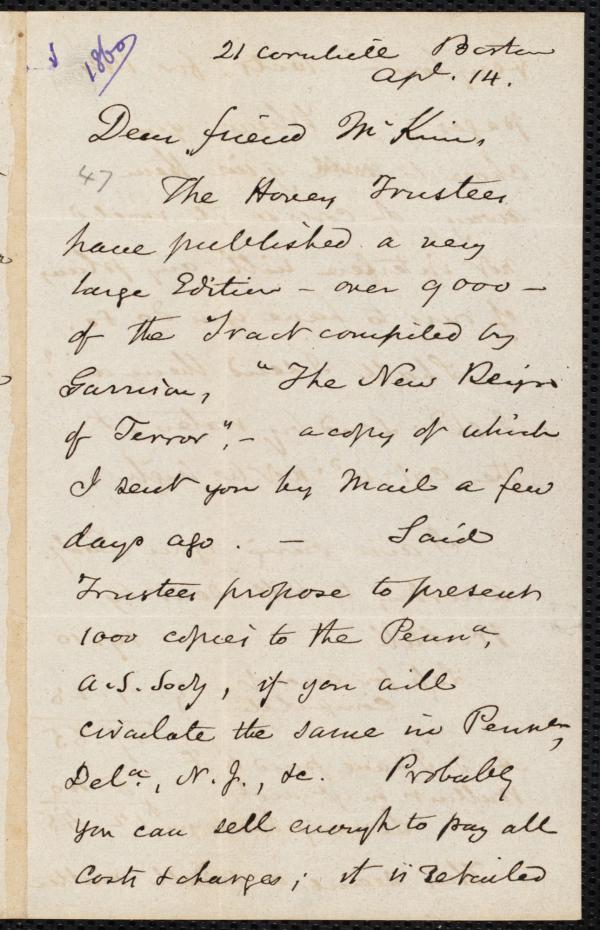 1860
21 Cornhill Boston
Apl. 14.
Dear friend McKim,
47
The Hovey Trustees
have published a very
large Edition – over 9000 –
of the Tract compiled by
Garrison, "The New Reign
of Terror", – a copy of which
I sent you by Mail a few
days ago. – Said
Trustees propose to present
1000 copies to the Penna.
A.S. Socy, if you will
circulate the same in Penna,
Dela., N.J., &c. Probably
you can sell enough to pay all
costs & charges; it is retailed